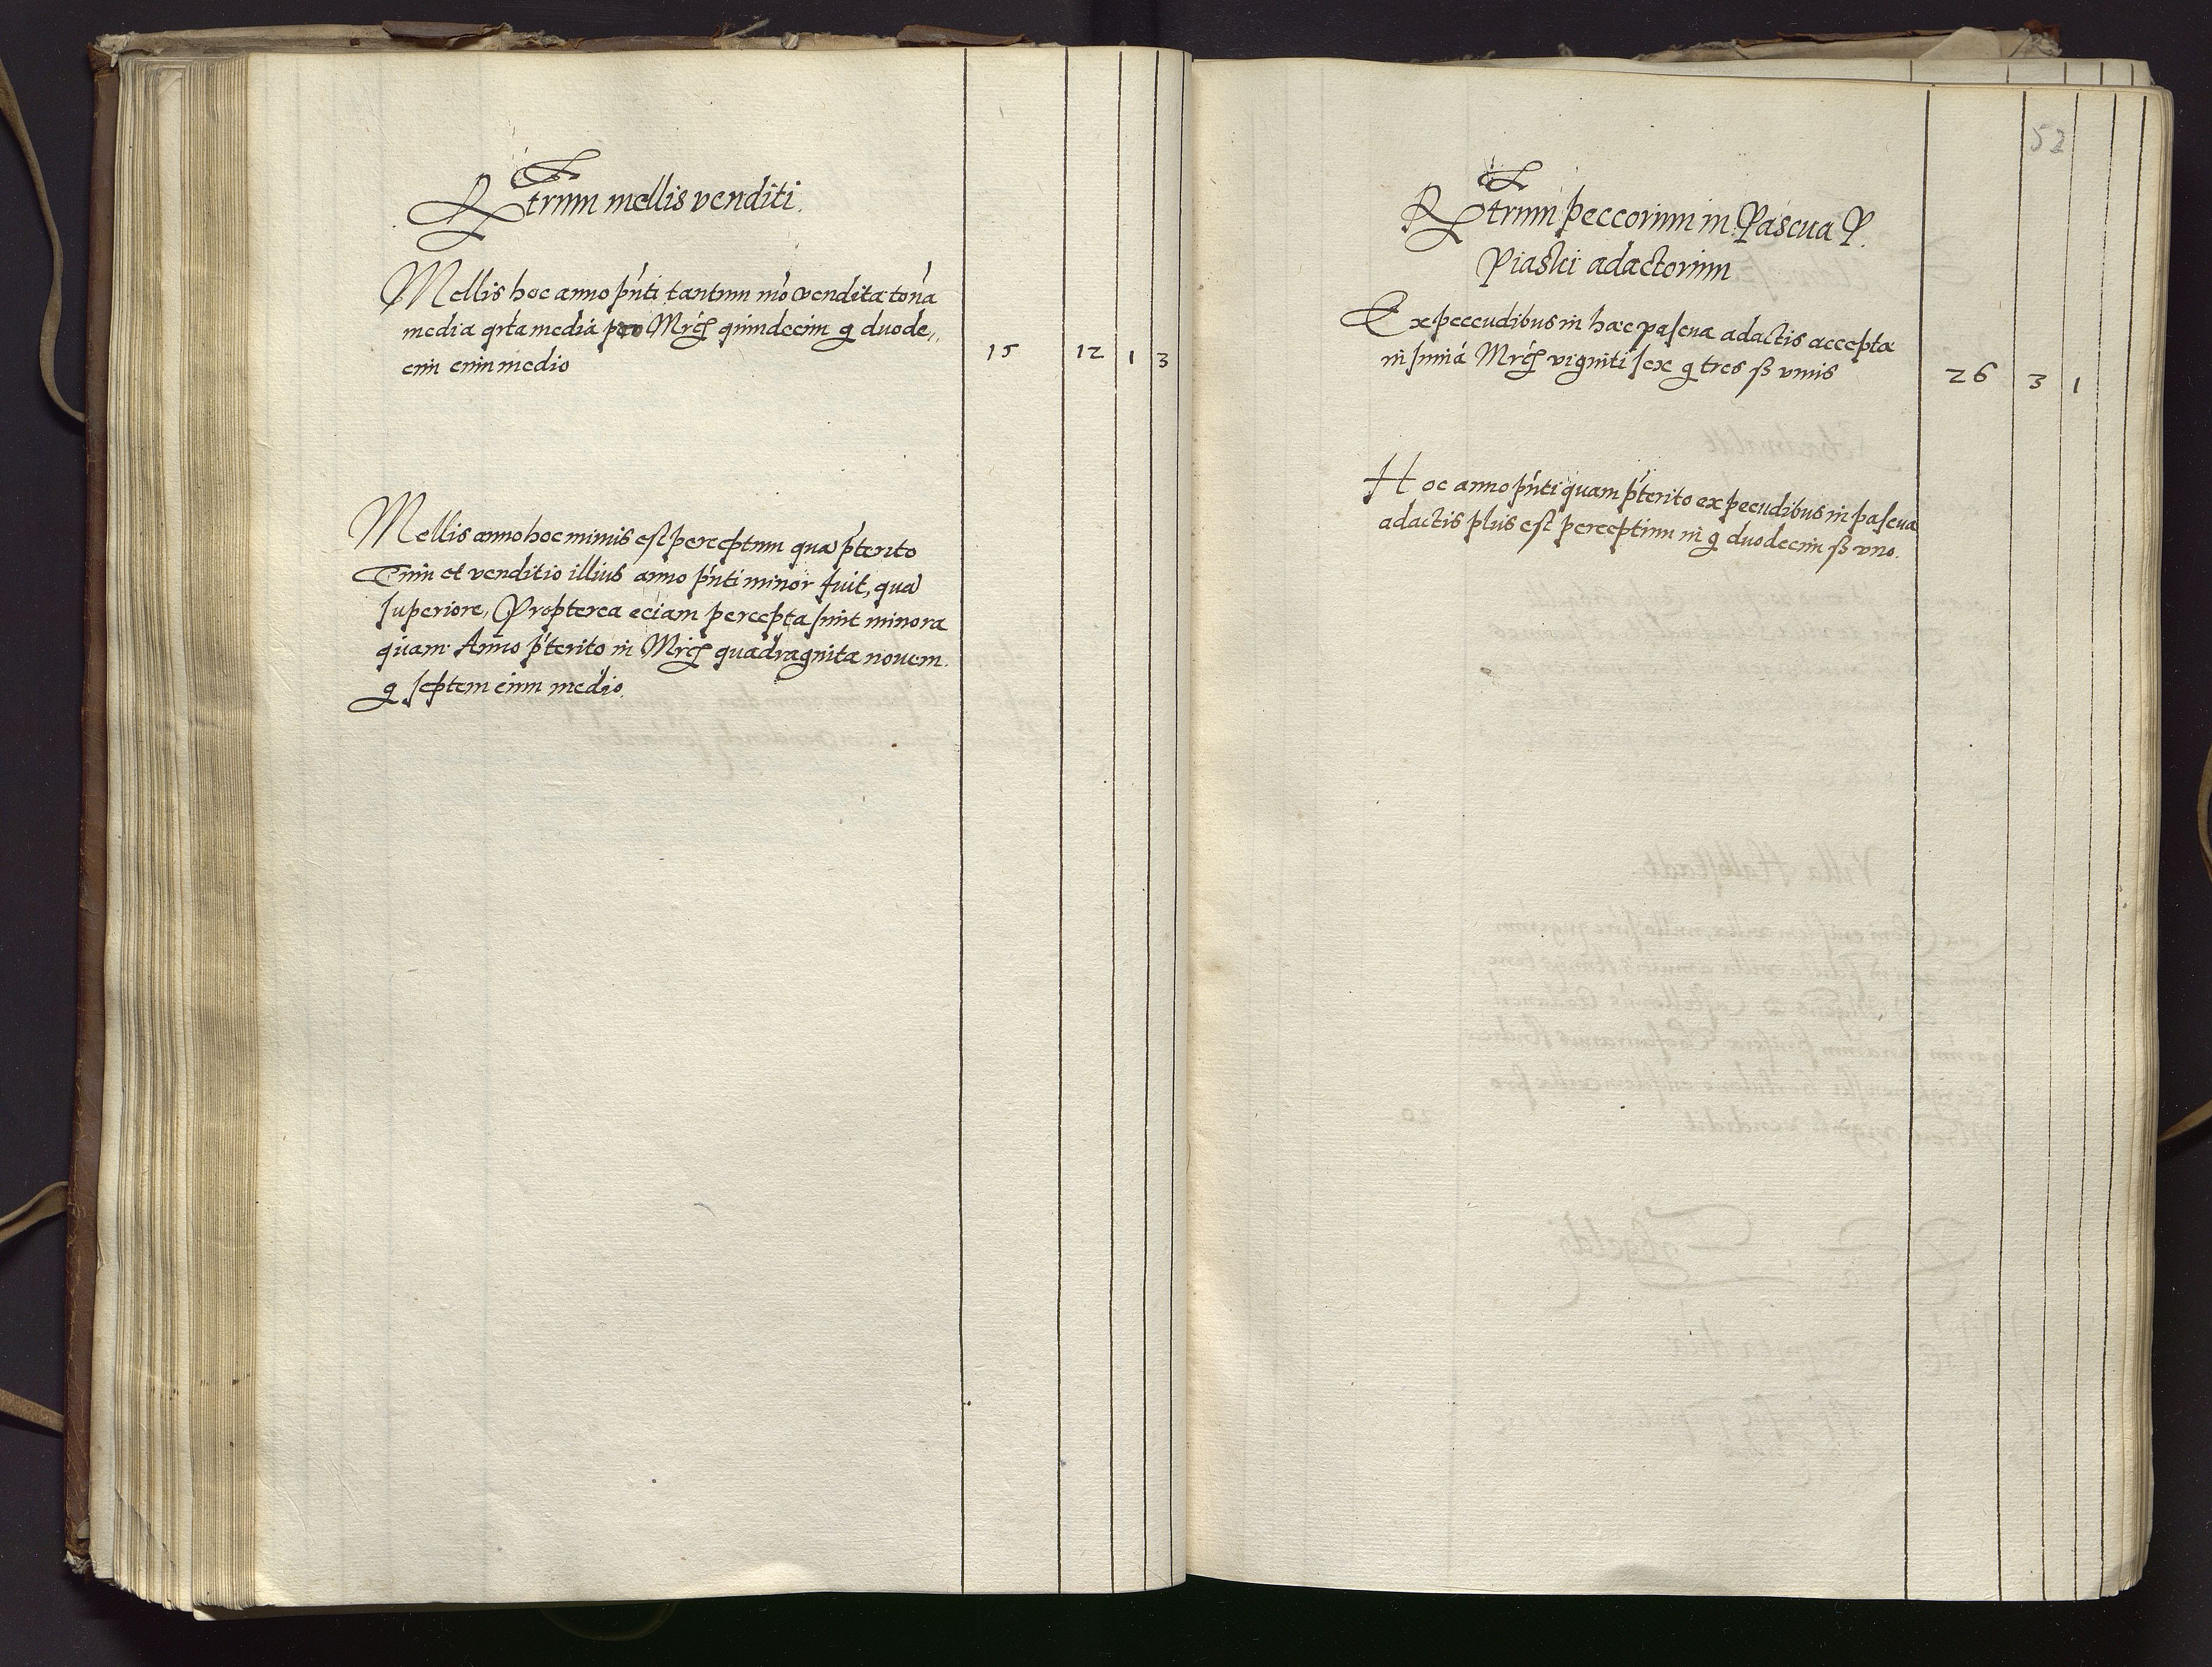 Rtrum mellis venditi.
Mellis hoc anno pnti tantum mo vendita tona
media qrta media pro Mrcis quindecim g duode„
cim cum medio
15 12 1 3
Mellis anno hoc minus est perceptum qua pterito
Cum et venditio illius anno pnti minor fuit, qua
superiore, Propterea eciam percepta sunt minora
quam Anno pterito in Mrcis quadraginta novem.
g septem cum medio.
52
Rtrum peccorum in Pascua P.
Piaski adactorum
Ex peccudibus in hac pascua adactis accepta
in suma Mrcis viginti sex g tres ß unus
26 3 1
Hoc anno pnti quam pterito ex pecudibus in pascua
adactis plus est perceptum in g duodecim ß uno.